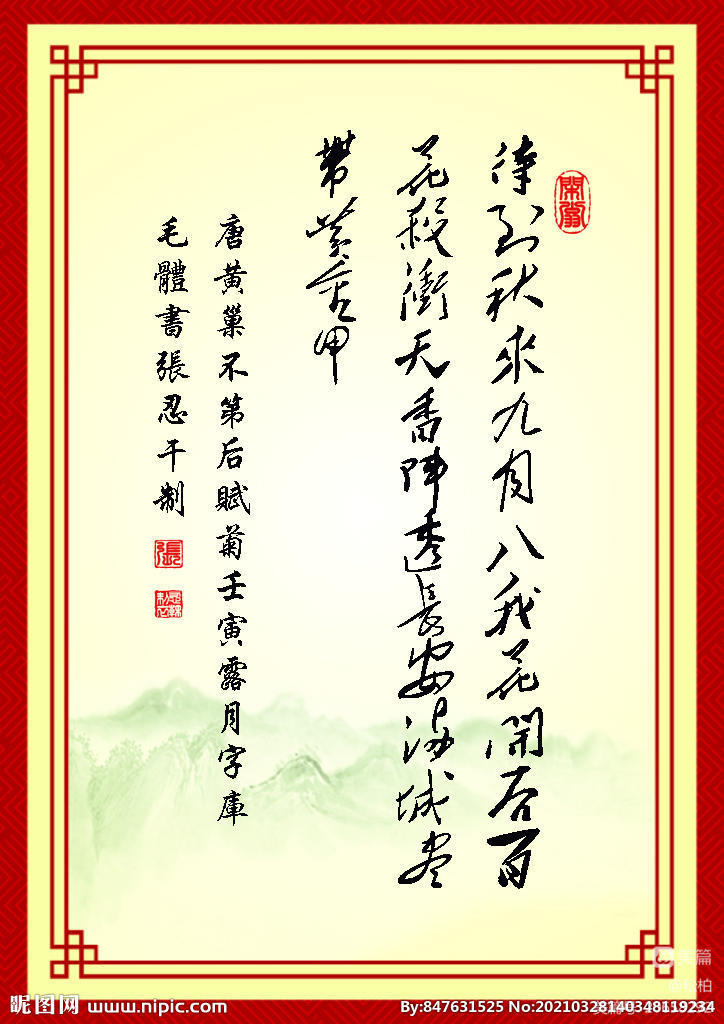 待到秋來九月八我花開后百
花殺衝天香陣透長安滿城盡
帶黃金甲
唐黃巢不第后賦菊壬寅露月字庫
毛體書張忍干制
張
昵图网 www.nipic.com
By:847631525 No:20210328140348119234